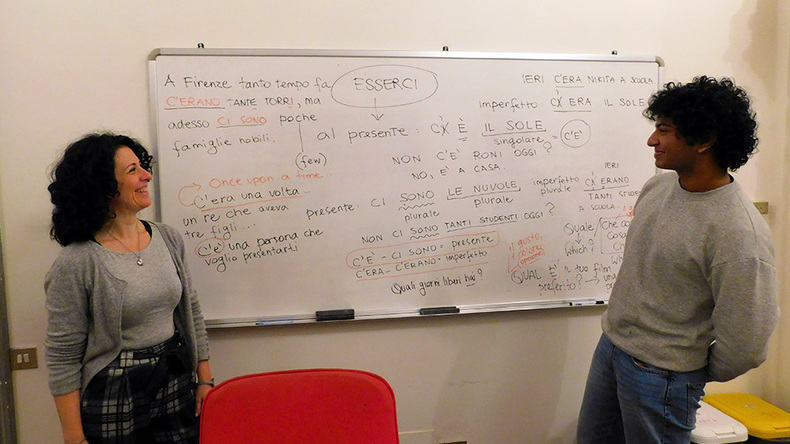 A Firenze tanto tempo fa
C'ERANO TANTE TORRI, ma
adesso CI SONO poche
famiglie nobili.
(few)
→ Once upon a time...
C'era una volta
un re che aveva
tre figli...
C'è una persona che
voglio presentarti
ESSERCI
al presente: CX È IL SOLE = C'E'
singolare
NON C'E' RONI OGGI?
NO, E' A CASA.
presente: CI SONO LE NUVOLE
plurale plurale
NON CI SONO TANTI STUDENTI OGGI?
C'E' - CI SONO = presente
C'ERA - C'ERANO = imperfetto
Quali giorni liberi hai?
IERI C'ERA NIKITA A SCUOLA
imperfetto: CX ERA IL SOLE
IERI
imperfetto CX ERANO
plurale
TANTI STUDE
A SCUOLA
Quale
↓
which?
il gusto,
colore
QUAL È il tuo film
preferito? → una